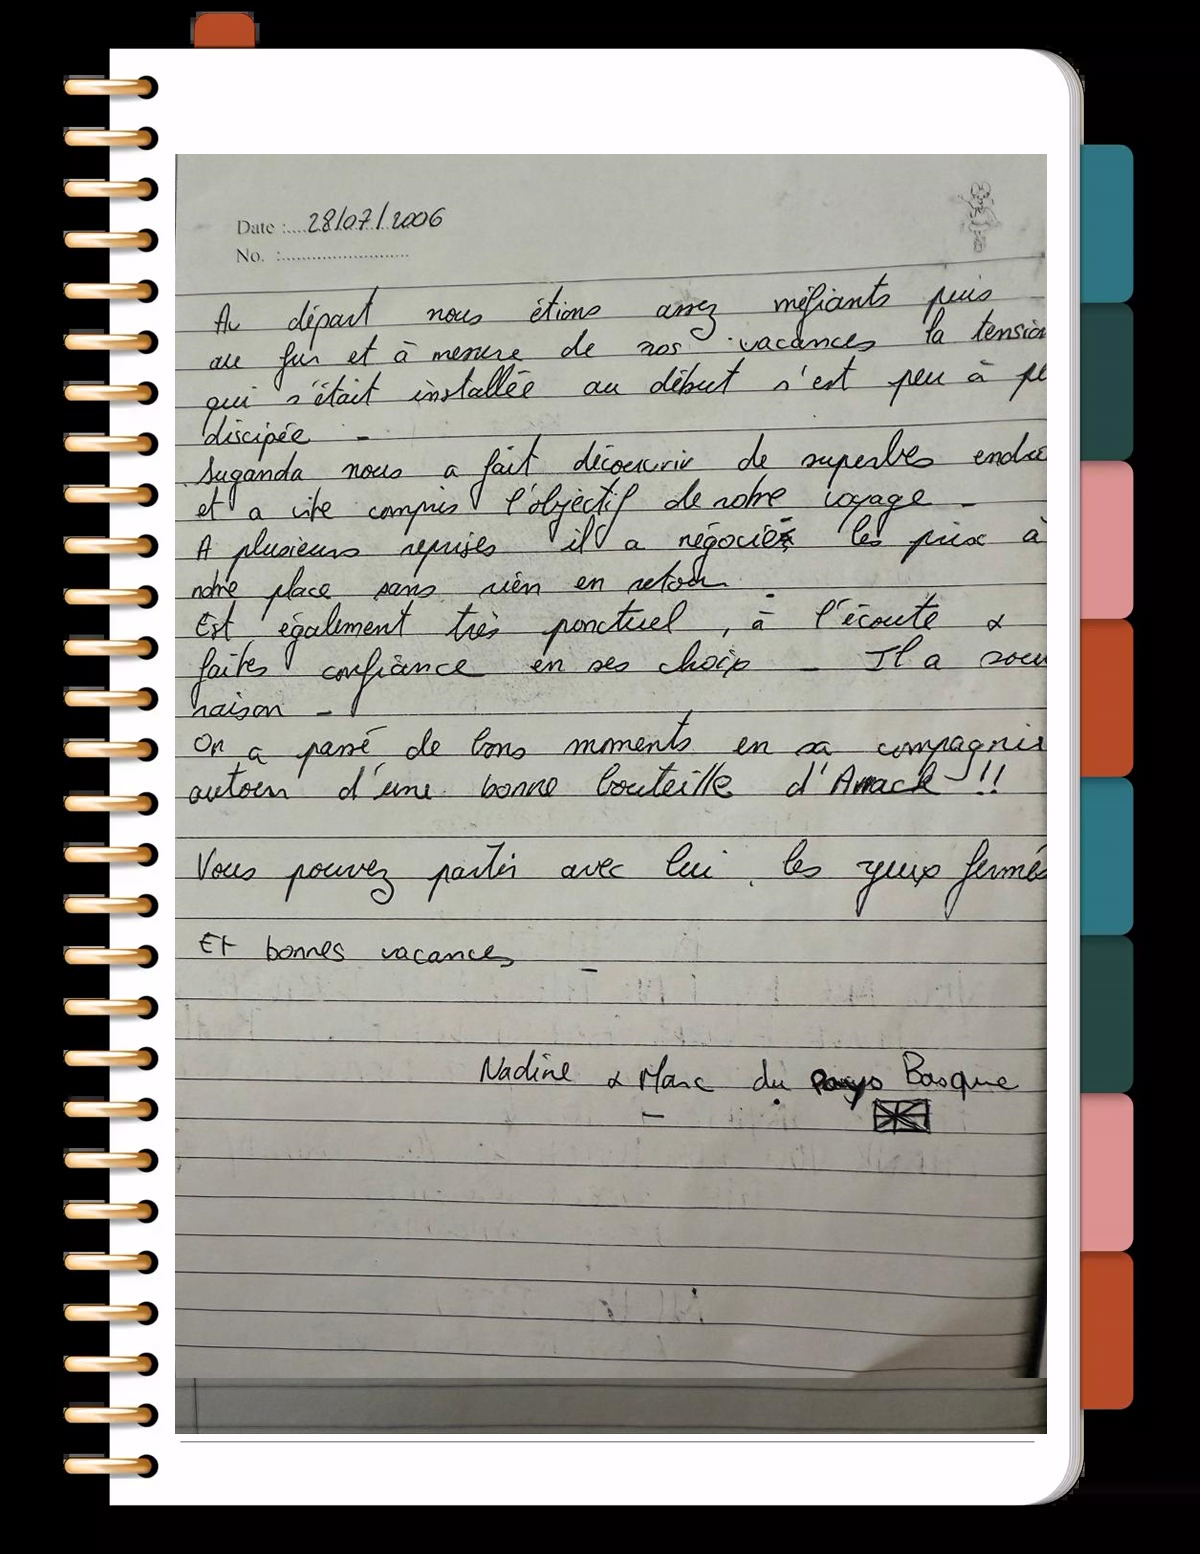 Date :....28/07/2006
No. :..........................
Au départ nous étions assez méfiants puis
au fur et à mesure de nos vacances la tension
qui s'était installée au début s'est peu à pe
discipée -
Suganda nous a fait découvrir de superbes endro
et a vite compris l'objectif de notre voyage -
A plusieurs reprises il a négocié les prix à
notre place sans rien en retour -
Est également très ponctuel, à l'écoute &
faites confiance en ses choix - Il a souv
raison -
On a passé de bons moments en sa compagnie
autour d'une bonne bouteille d'Arrack !!
Vous pouvez partir avec lui les yeux fermés
Et bonnes vacances -
Nadine & Marc du Pays Basque